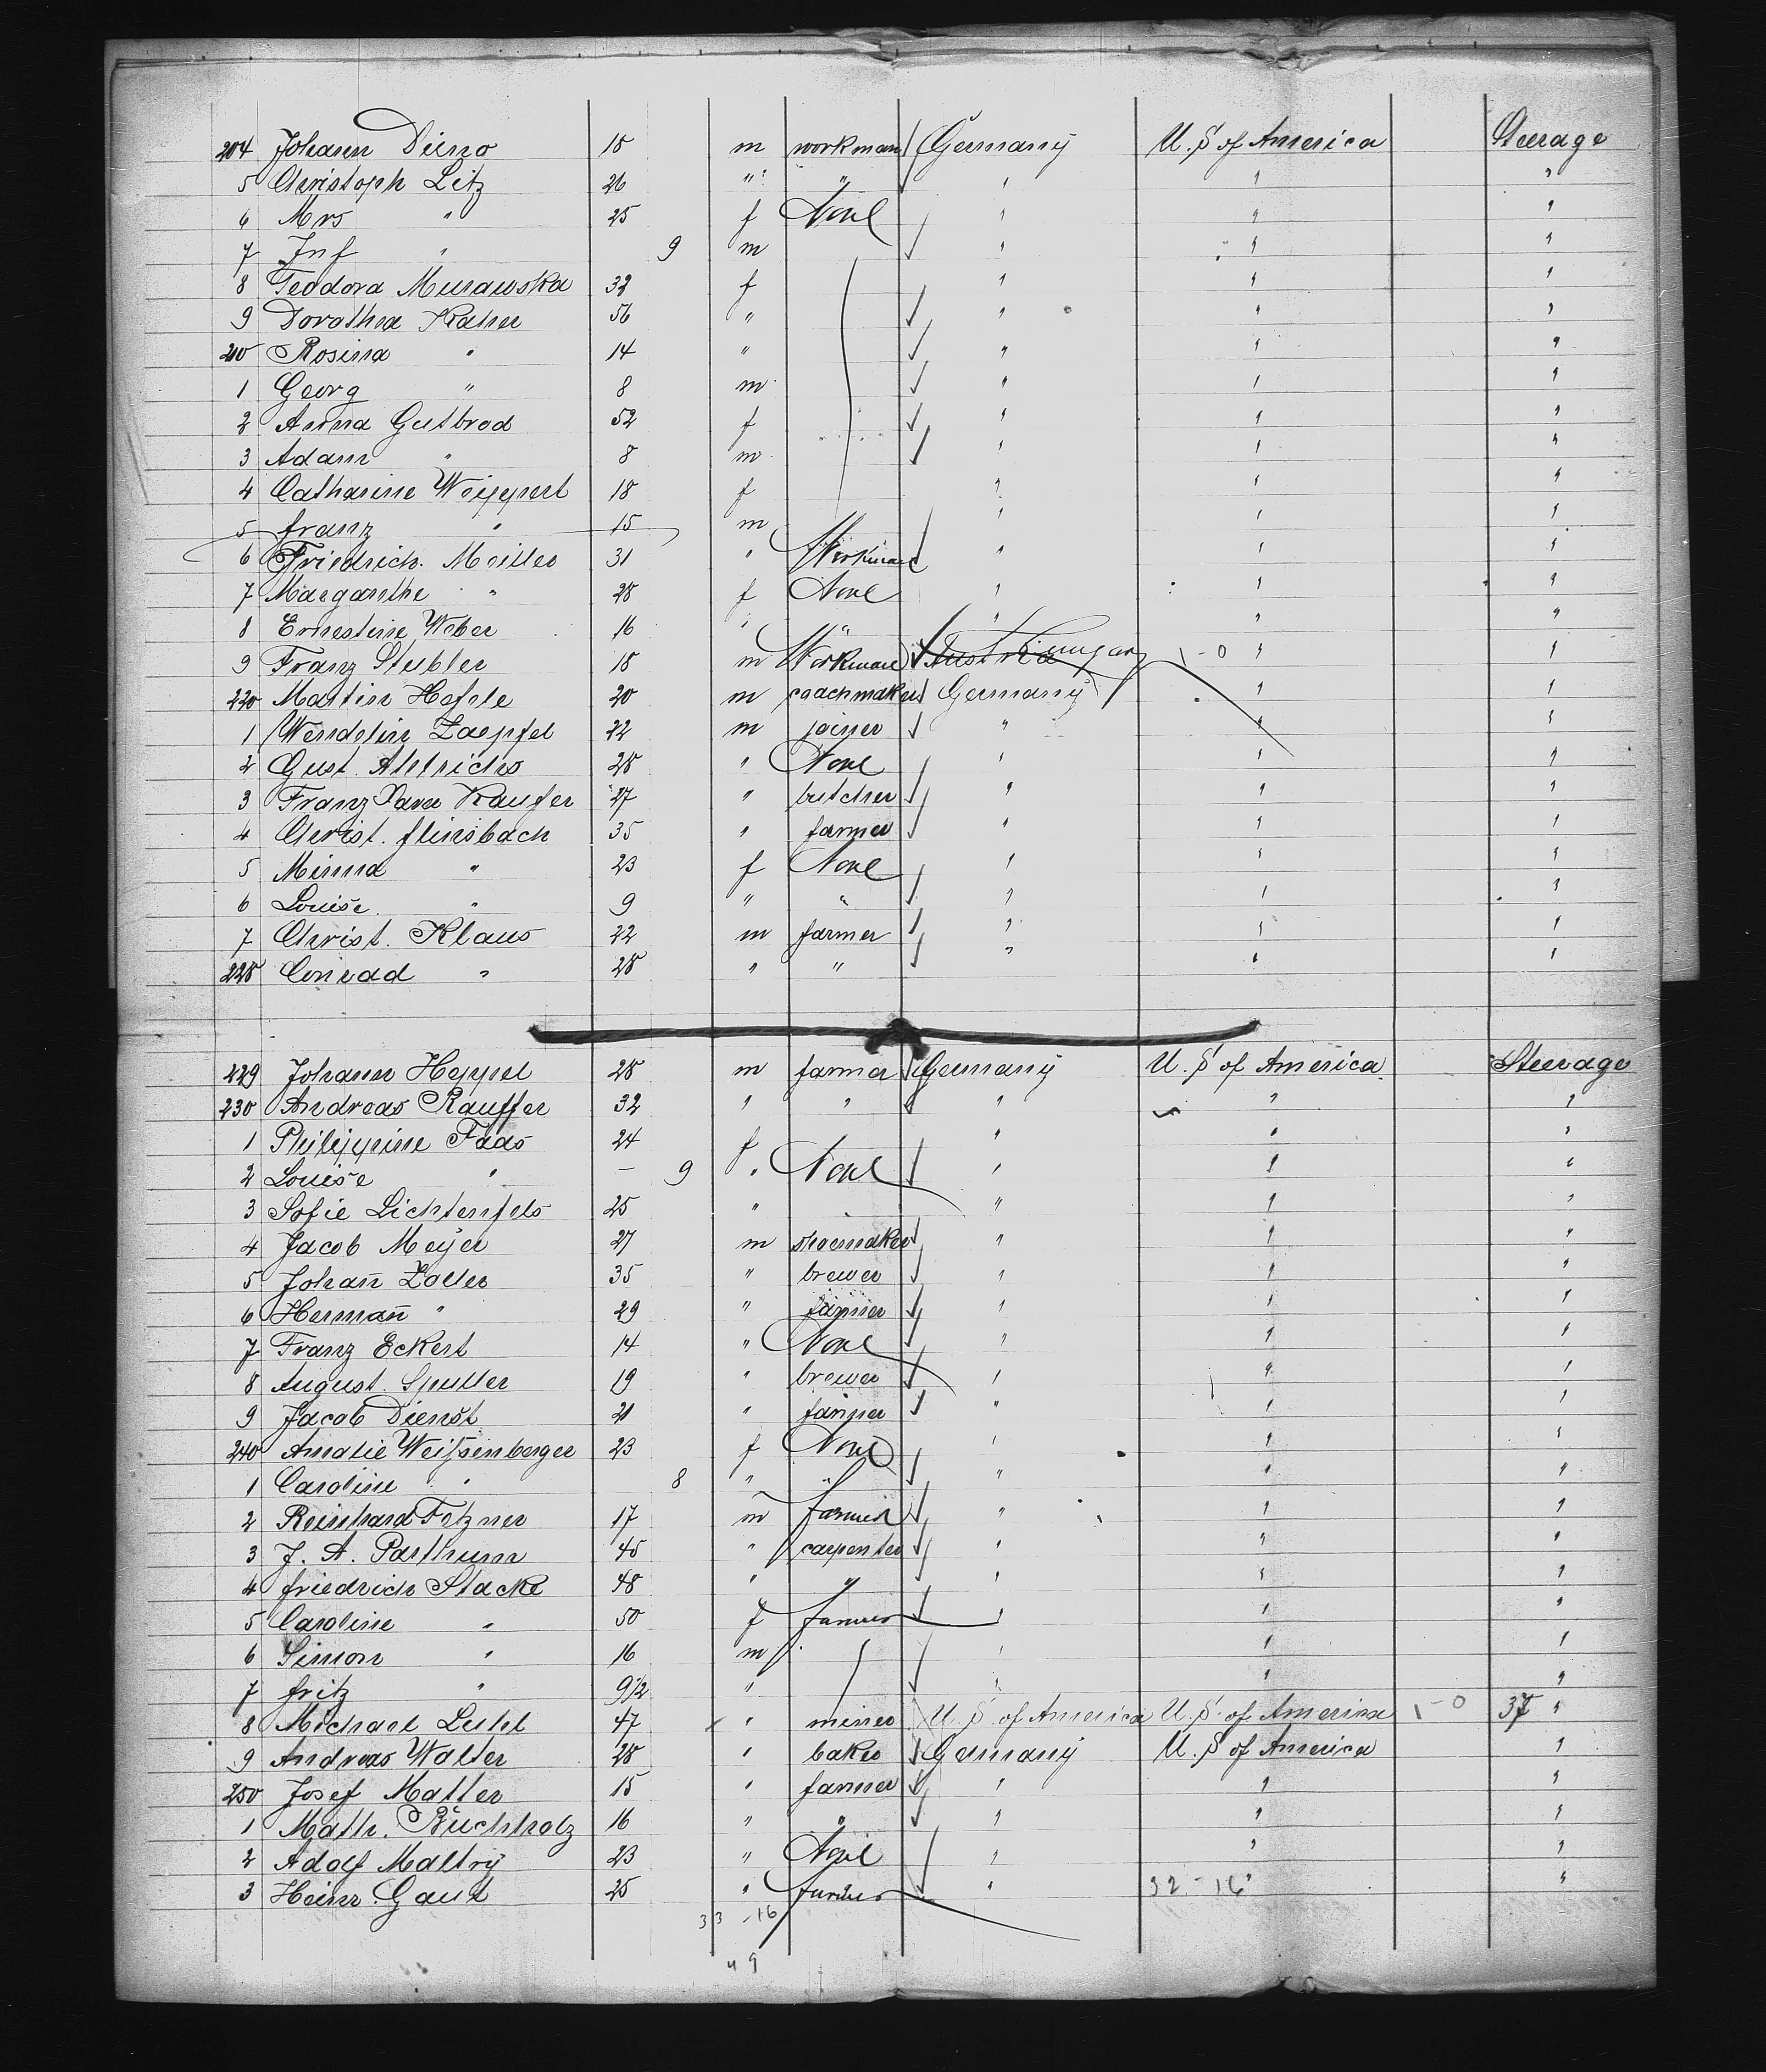 204 Johann Dieno 18 m workman Germany U. S of America Steerage
5 Christoph Litz 26 " " " " "
6 Mrs " 25 f None " " "
7 Inf " 9 m " " "
8 Teodora Murawska 32 f " " "
9 Dorothea Kaher 56 " " " "
210 Rosina " 14 " " " "
1 Georg " 8 m " " "
2 Anna Gutbrod 52 f " " "
3 Adam " 8 m " " "
4 Catharine Weippert 18 f " " "
5 Franz " 15 m " " "
6 Friedrich Moiller 31 " Workman " " "
7 Margarethe " 28 f None " " "
8 Ernestine Weber 16 " " " " "
9 Franz Stubler 18 m Workman Austria Hungary 1-0 " "
220 Martin Hefele 20 m coachmaker Germany " "
1 Wendelin Zaepfel 22 m joiner " " "
2 Gust. Ahlrichs 28 " None " " "
3 Franz Xaver Kaufer 27 " butcher " " "
4 Christ. Flinsbach 35 " farmer " " "
5 Minna " 23 f None " " "
6 Louise " 9 " " " " "
7 Christ. Klaus 22 m farmer " " "
228 Conrad " 28 " " " " "
229 Johann Heppel 28 m farmer Germany U. S of America Steerage
230 Andreas Rauffer 32 " " " " "
1 Philippine Faas 24 f " " "
2 Louise " — 9 " None " " "
3 Sofie Lichtenfels 25 " " " " "
4 Jacob Meyer 27 m shoemaker " " "
5 Johan̄ Zoller 35 " brewer " " "
6 Herman̄ " 29 " farmer " " "
7 Franz Eckert 14 " None " " "
8 August. Spuller 19 " brewer " " "
9 Jacob Dienst 21 " farmer " " "
240 Amalie Weißenberger 23 f None " " "
1 Caroline " 8 " " " " "
2 Reinhard Fetzner 17 m farmer " " "
3 J. A. Parthum 45 " carpenter " " "
4 Friedrich Stacke 48 " " " " "
5 Caroline " 50 f farmer " " "
6 Simon " 16 m " " "
7 Fritz " 9 1/2 " " " "
8 Michael Luhl 47 " miner U. S. of America U. S. of America 1-0 37 "
9 Andreas Walter 28 " baker Germany U. S of America "
250 Josef Matter 15 " farmer " " "
1 Math. Buchholz 16 " " " " "
2 Adolf Maltry 23 " None " " "
3 Heinr. Gaus 25 " farmer " 32-16 "
33 -16
49